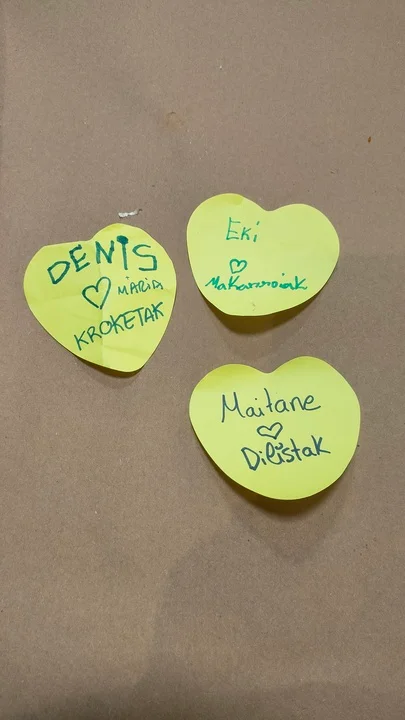 DENIS
♡ MARIA
KROKETAK
Eki
♡
Makarroiak
Maitane
♡
Dilistak